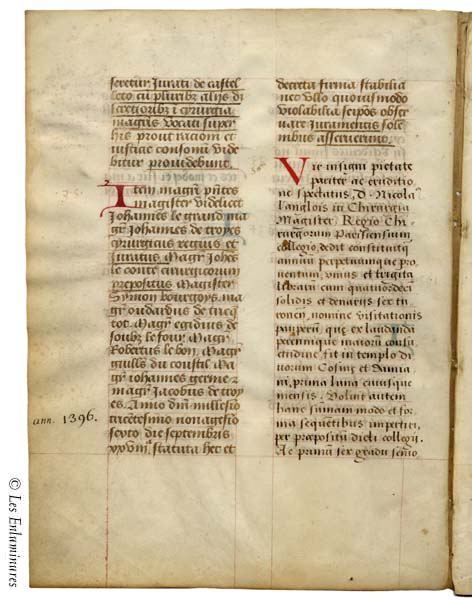 secretum Jurati de castel
leto cū pluribꝫ alijs di
scretioribꝫ i cyrurgia
magr̄is vocati super
his prout racioni et
iusticie consonū vide
bitur prouidebunt.
Item magr̄i pn̄tes
magister videlicet
Johannes le grand ma
gr̄ Johannes de troyes
cyrurgicus regius et
Juratus Magr̄ Johēs
le conte cirurgicorum
prepositus Magister
Symon bourgoys ma
gr̄ oudardus de
tot Magr̄ egidius de
soubz le four Magr̄
Robertus le bon Magr̄
du constil Ma
gr̄ iohannes
magr̄ Jacobus de troy
es. Anno dn̄i millesīo
tricētesimo nonagesīo
sexto die septembris
xxviii statuta hec et
ann. 1396.
decreta firma stabilia
nec vllo quouismodo
violabilia se ipōs obser
uare Juramentis sole
nibus asseruerunt.
Vir insigni pietate
pariter ac eruditio
ne spectatus, D. Nicola
Langlois in Chirurgia
Magister, Regio Chi
rurgorum Parisiensium,
collegio, dedit constituitq
annuū perpetuumque pro
uentum, vnius et triginta
librarū cum quindecī
solidis et denarijs sex tu
ronen̄, nomine visitationis
pauperū, que ex laudanda
perennique maiorū consu
etudine, fit in templo di
uorum Cosmę et Damia
ni, prima luna cuiusque
mensis. Voluit autem
hanc sūmam modo et for
ma sequētibus impertiri,
per propositū dicti collegii.
Ac primū sex gradu
© Les Enluminures